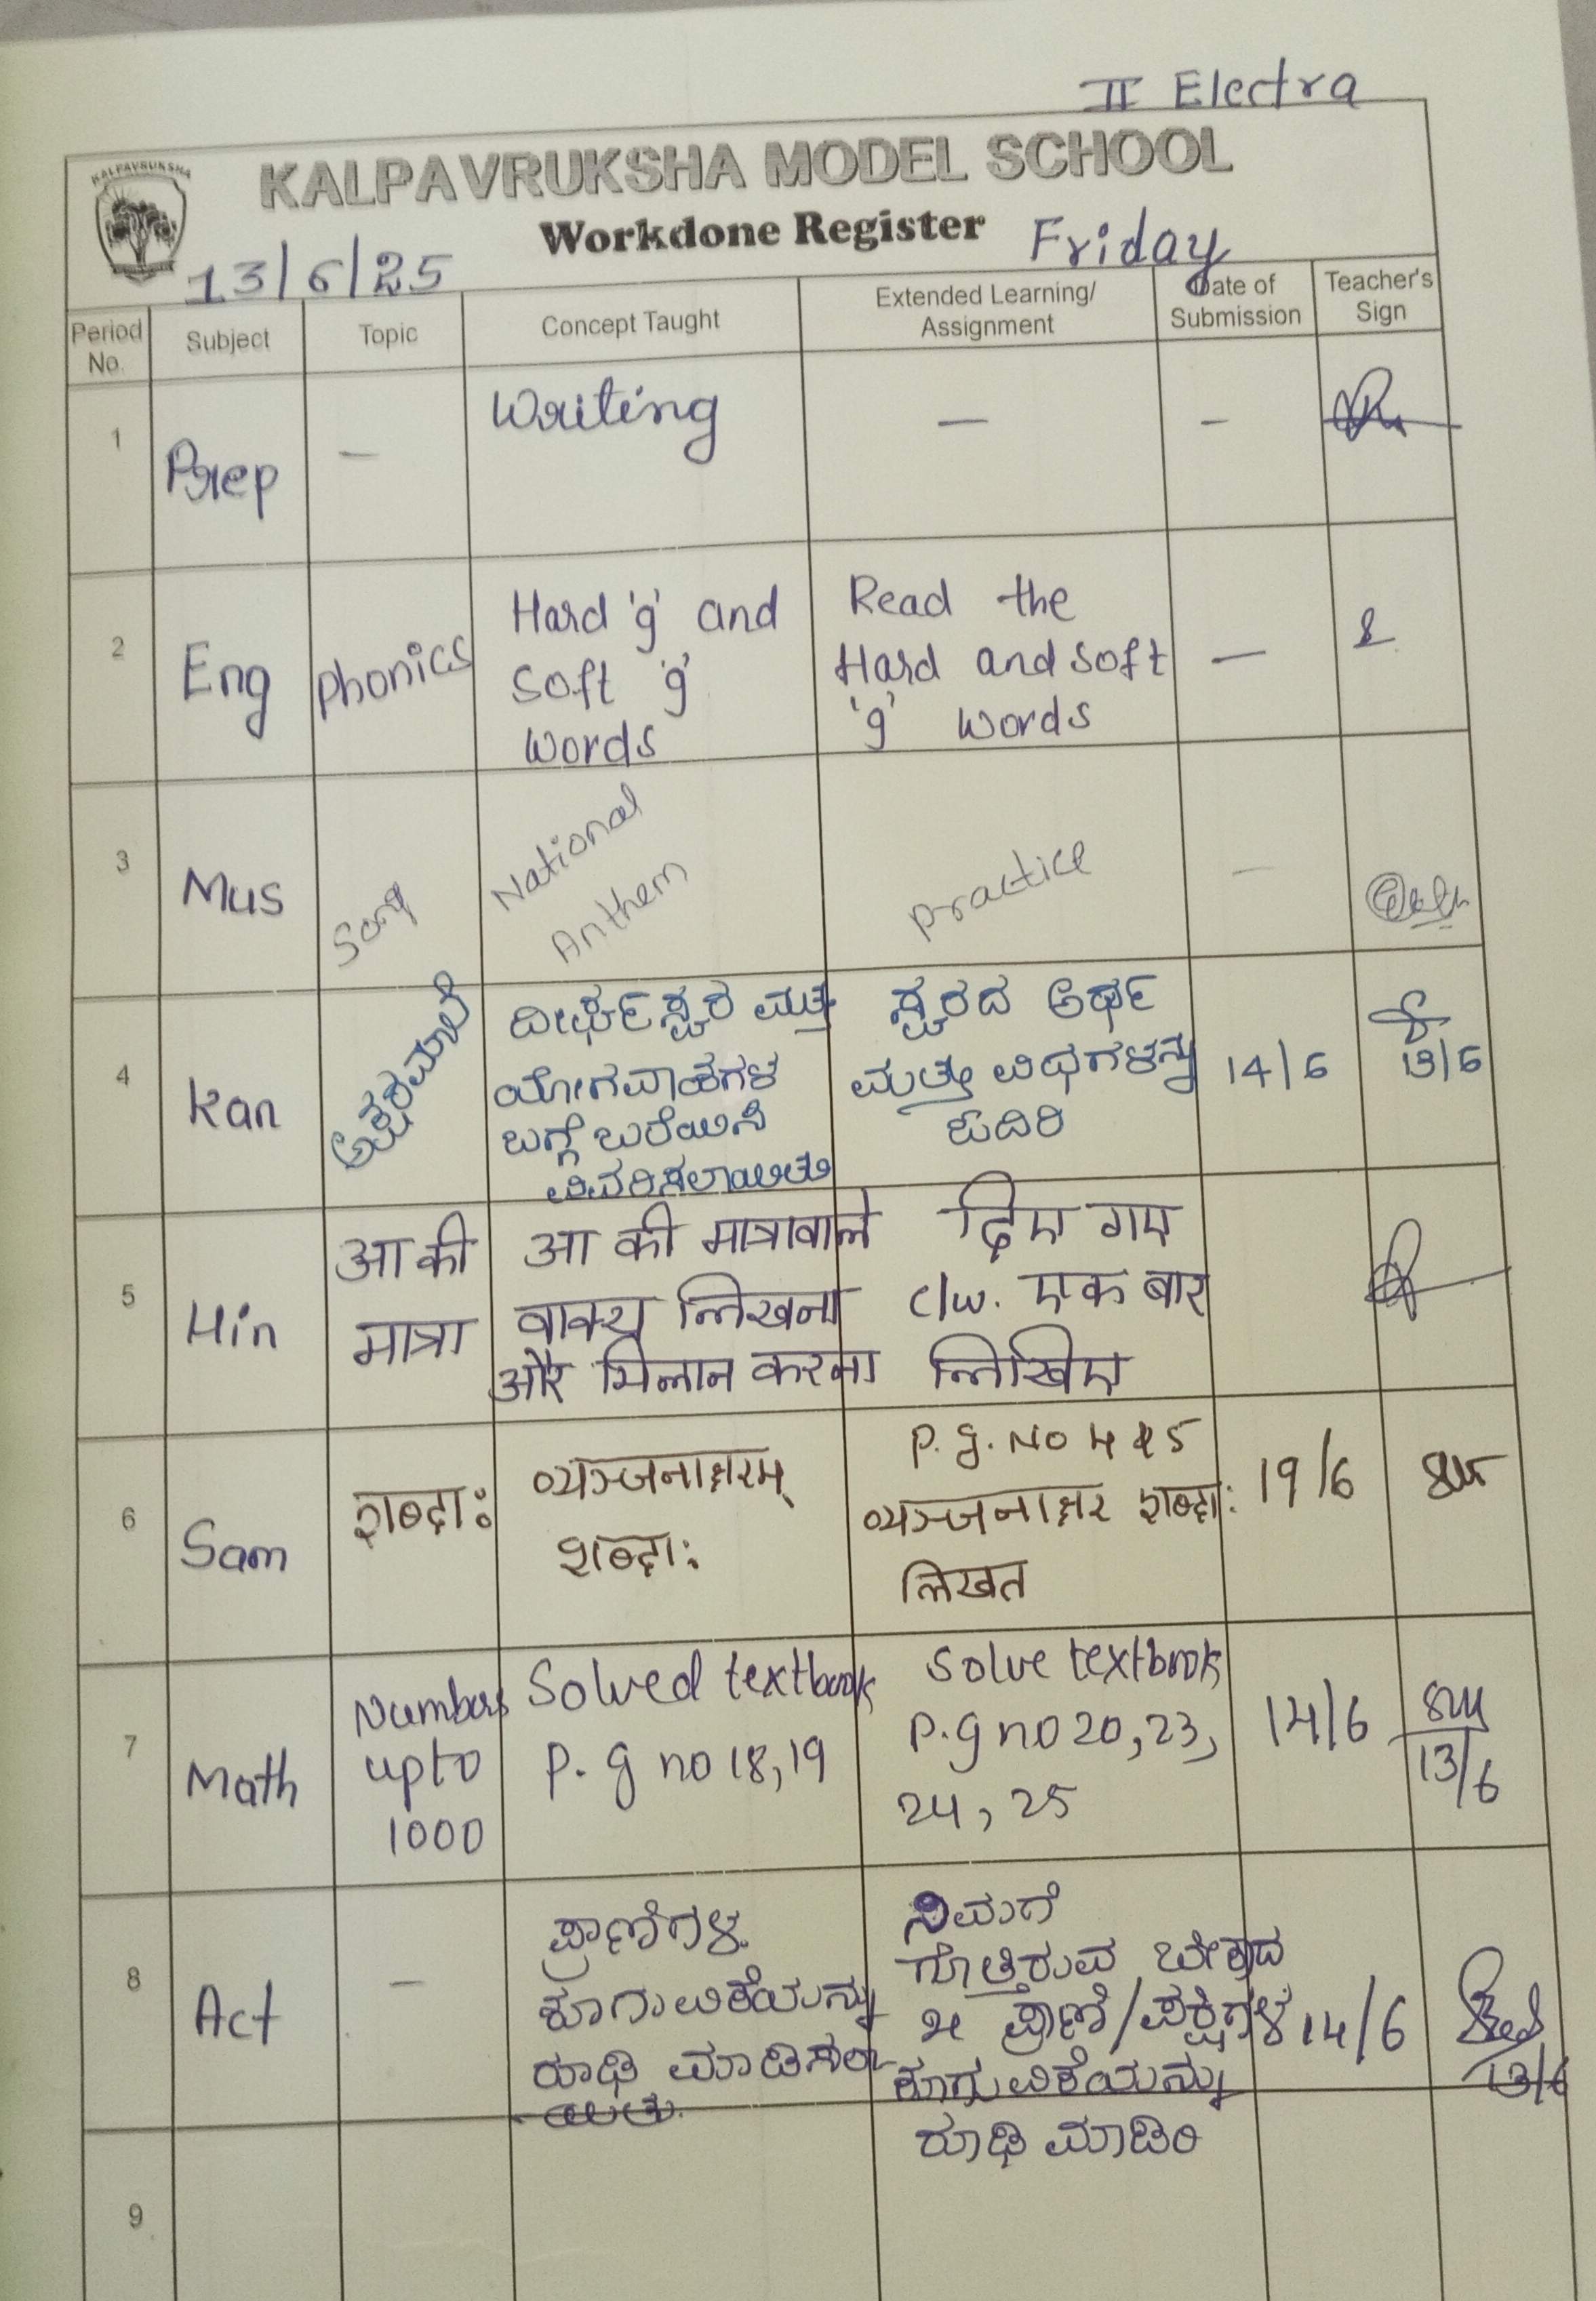 II Electra
KALPAVRUKSHA
KALPAVRUKSHA MODEL SCHOOL
Workdone Register
Friday
13/6/25
Period No.
Subject
Topic
Concept Taught
Extended Learning/
Assignment
Date of
Submission
Teacher's
Sign
1
Prep
—
Writing
—
—
2
Eng
Phonics
Hard 'g' and
Soft 'g'
words
Read the
Hard and soft
'g' words
—
3
Mus
Song
National
Anthem
Practice
—
4
Kan
ಅಕ್ಷರಮಾಲೆ
ದೀರ್ಘಸ್ವರ ಮತ್ತು
ಯೋಗವಾಹಗಳ
ಬಗ್ಗೆ ಬರೆಯಿಸಿ
ವಿವರಿಸಲಾಯಿತು
ಸ್ವರದ ಅರ್ಥ
ಮತ್ತು ವಿಧಗಳನ್ನು
ಓದಿರಿ
14/6
13/6
5
Hin
आ की
मात्रा
आ की मात्रावाले
वाक्य लिखना
और मिलान करना
दिए गए
c/w. एक बार
लिखिए
6
Sam
शब्दाः
व्यञ्जनाक्षरम्
शब्दाः
P.g. No 4 & 5
व्यञ्जनाक्षर शब्दाः
लिखत
19/6
7
Math
Numbers
upto
1000
Solved textbook
P.g no 18,19
Solve textbook
P.g no 20,23,
24, 25
14/6
13/6
8
Act
—
ಪ್ರಾಣಿಗಳ
ಕೂಗುವಿಕೆಯನ್ನು
ರೂಢಿ ಮಾಡಿಸಲಾ
ಯಿತು.
ನಿಮಗೆ
ಗೊತ್ತಿರುವ ಬೇರೆ
೫ ಪ್ರಾಣಿ/ಪಕ್ಷಿಗಳ
ಕೂಗುವಿಕೆಯನ್ನು
ರೂಢಿ ಮಾಡಿರಿ
14/6
13/6
9